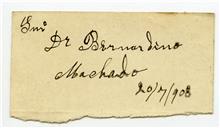 Snr
Dr Bernardino
Machado
20/7/908